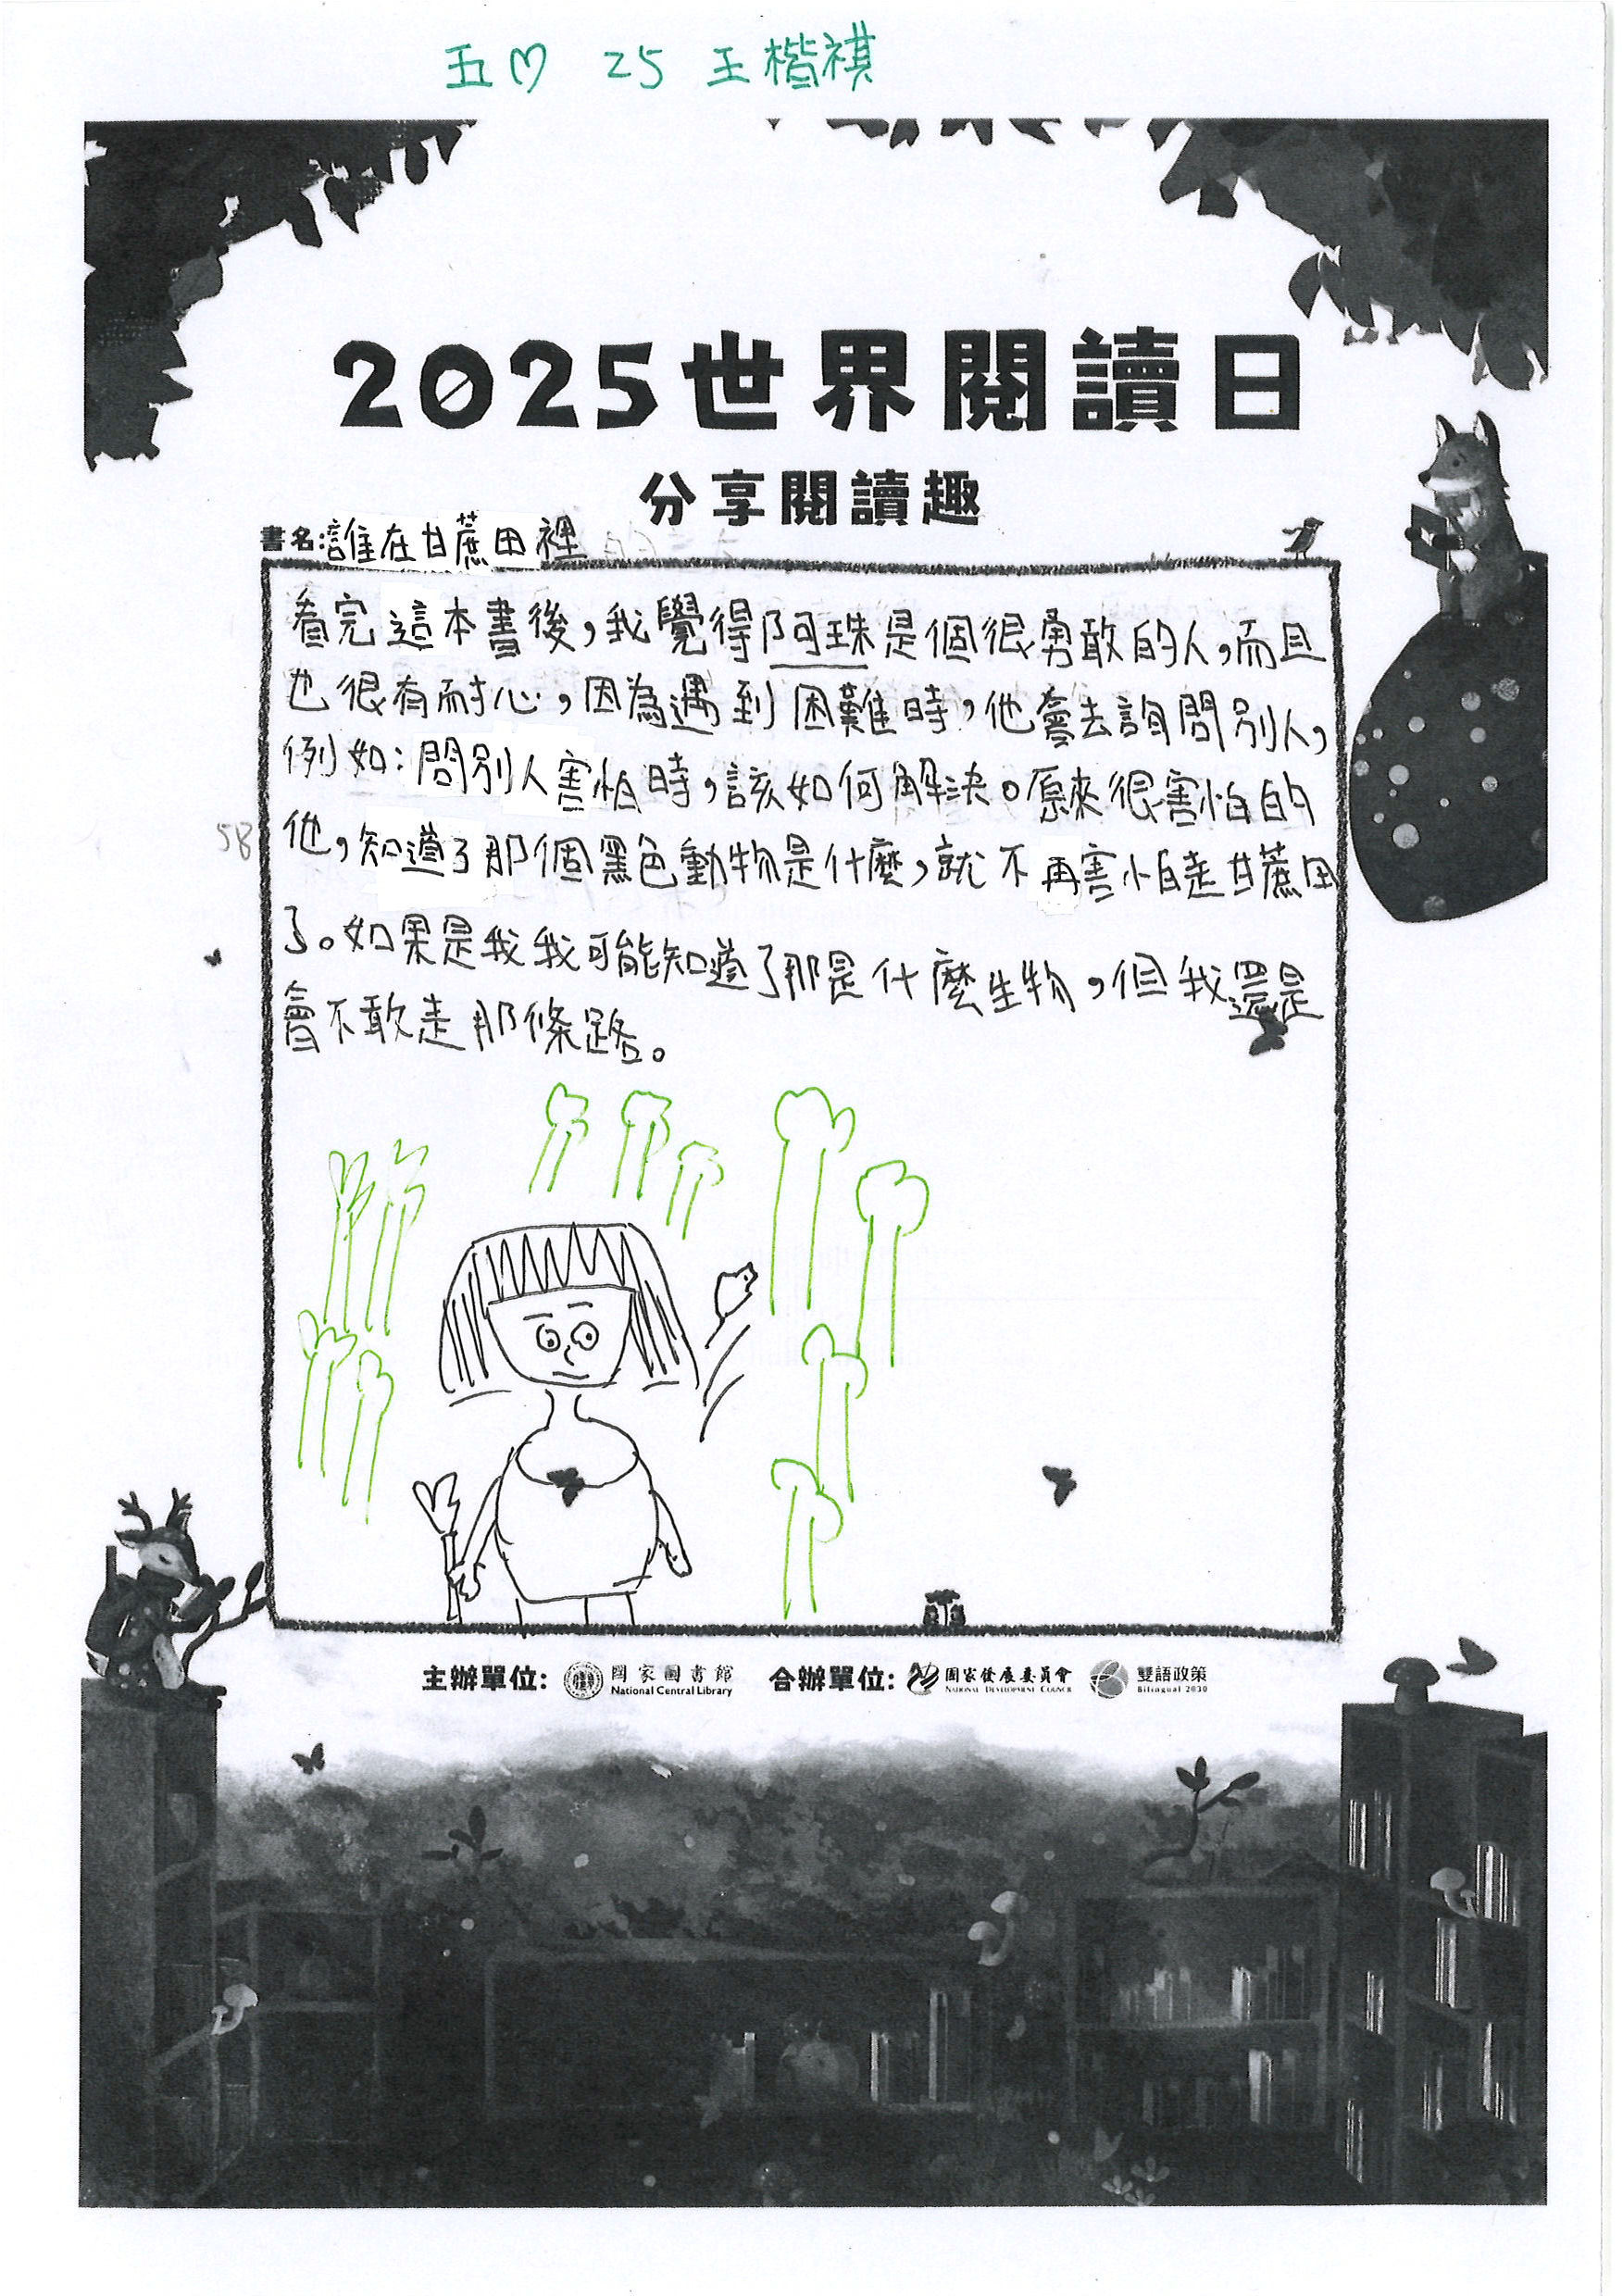 五 25 王楷祺
2025世界閱讀日
分享閱讀趣
書名:誰在甘蔗田裡
看完這本書後,我覺得阿珠是個很勇敢的人,而且
也很有耐心,因為遇到困難時,他會去詢問別人,
例如:問別人害怕時,該如何解決。原來很害怕的
58
他,知道了那個黑色動物是什麼,就不再害怕走甘蔗田
了。如果是我我可能知道了那是什麼生物,但我還是
會不敢走那條路。
主辦單位: 國家圖書館 National Central Library 合辦單位: 國家發展委員會 NATIONAL DEVELOPMENT COUNCIL 雙語政策 Bilingual 2030